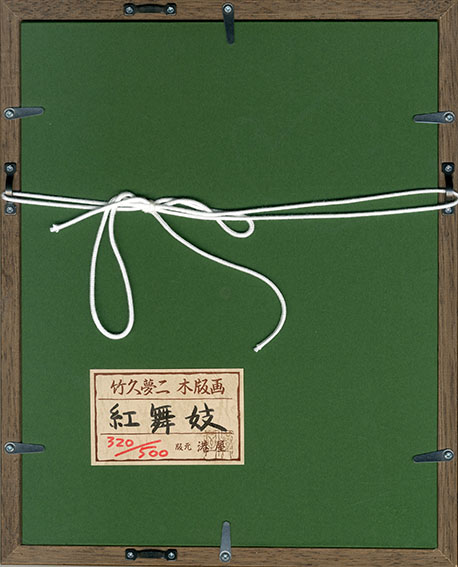 竹久夢二 木版画
紅舞妓
320/500 版元 港屋